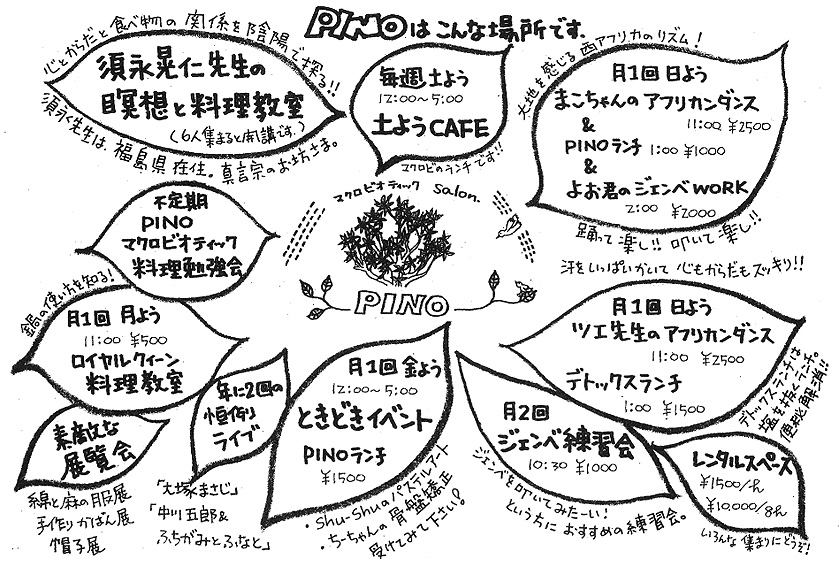 PINOはこんな場所です.
心とからだと食べ物の関係を陰陽で探る!!
須永晃仁先生の
瞑想と料理教室
(6人集まると開講です.)
須永先生は、福島県在住。真言宗のお坊さま。
毎週土よう
12:00〜5:00
土ようCAFE
マクロビのランチです!!
大地を感じる西アフリカのリズム!
月1回 日よう
まこちゃんのアフリカンダンス
11:00 ¥2500
&
PINOランチ 1:00 ¥1000
&
よお君のジェンベWORK
2:00 ¥2000
踊って楽し!! 叩いて楽し!!
汗をいっぱいかいて 心もからだもスッキリ!!
不定期
PINO
マクロビオティック
料理勉強会
マクロビオティック salon.
PINO
鍋の使い方を知る!
月1回 月よう
11:00 ¥500
ロイヤルクィーン
料理教室
素敵な
展覧会
綿と麻の服展
手作りかばん展
帽子展
年に2回の
恒例
ライブ
「大塚まさじ」
「中川五郎&
ふちがみとふなと」
月1回 金よう
12:00〜5:00
ときどきイベント
PINOランチ
¥1500
・shu-shuのパステルアート
・ちーちゃんの骨盤矯正
受けてみて下さい!
月1回 日よう
ツエ先生のアフリカンダンス
11:00 ¥2500
デトックスランチ
1:00 ¥1500
デトックスランチは
塩を抜くランチ。
便秘解消!!
月2回
ジェンベ練習会
10:30 ¥1000
ジェンベを叩いてみたーい!
という方に おすすめの練習会。
レンタルスペース
¥1500/h
¥10,000/8h
いろんな集まりにどうぞ!